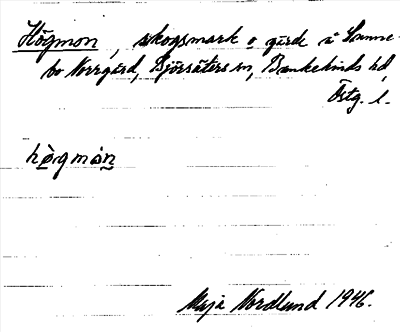 Högmon, skogsmark o gärde å Sunne-
bo Norrgård, Björsäters sn, Bankekinds hd,
Östg. l.
hògmón
Maja Nordlund 1946.